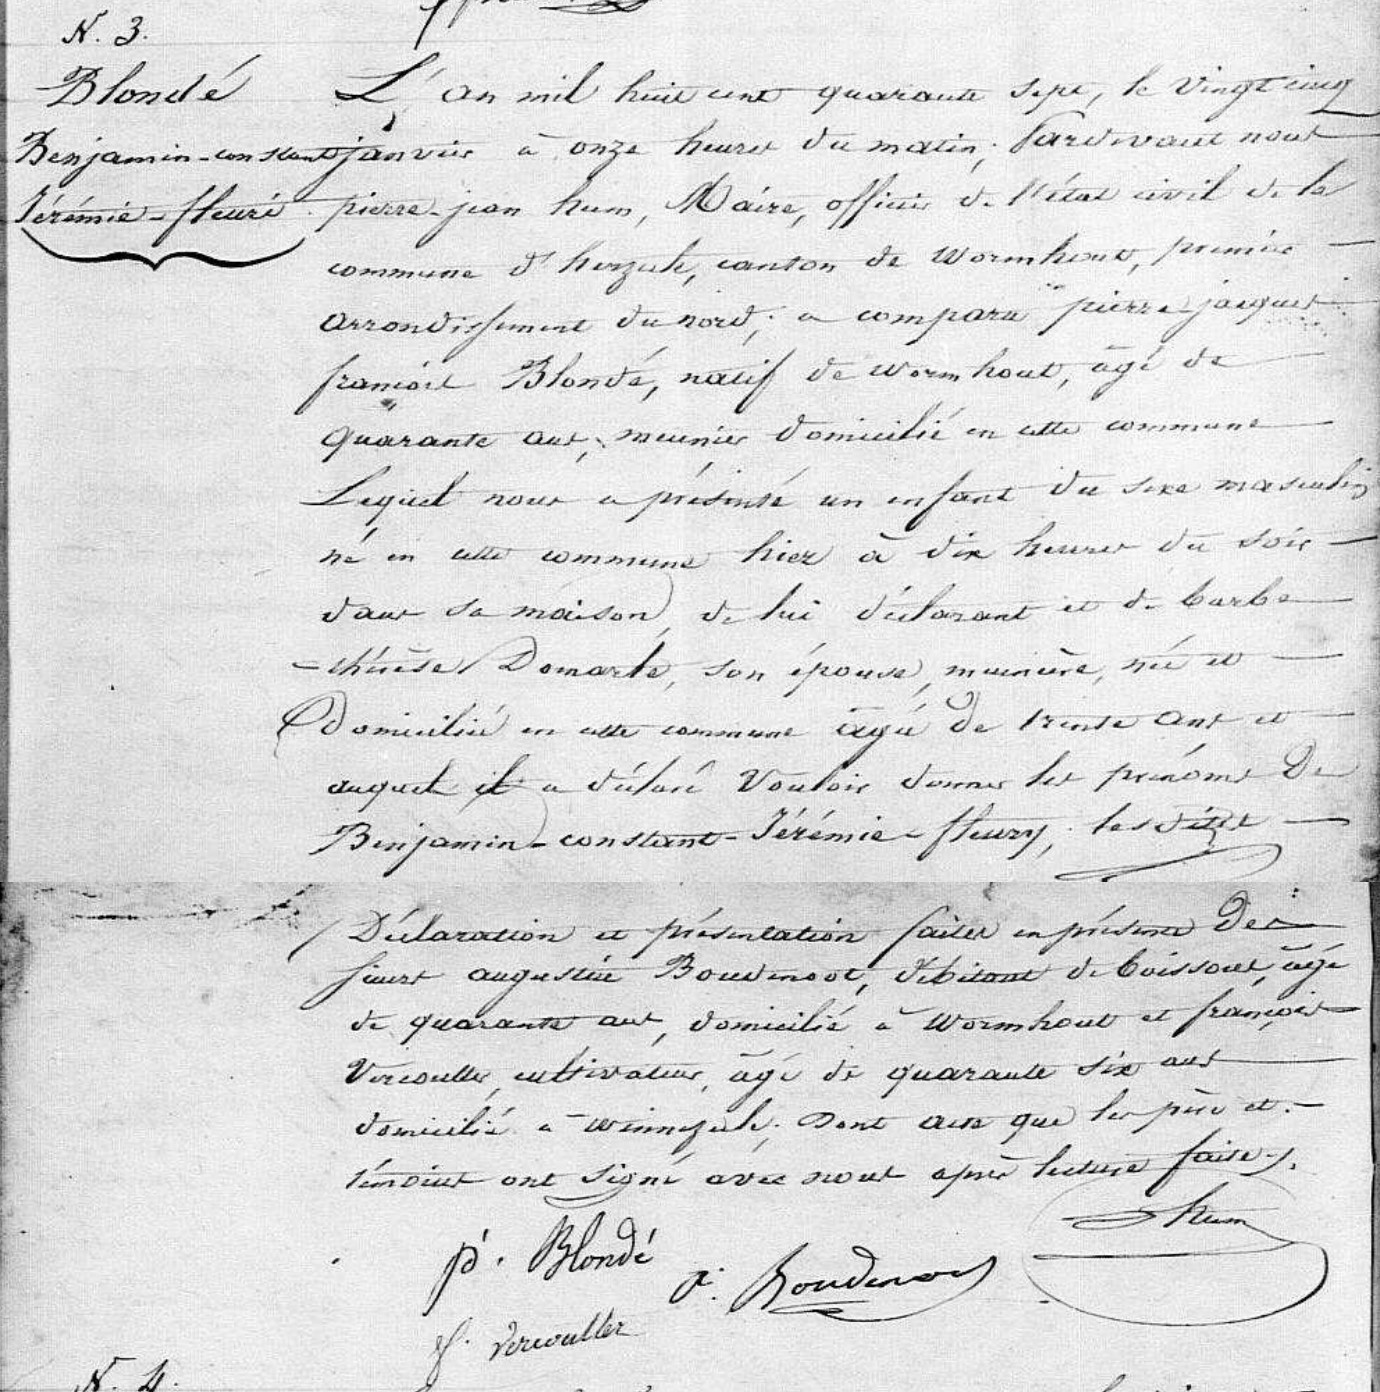 N. 3.
Blondé
Benjamin-constant
Jérémie-fleuri.
L'an mil huit cent quarante sept, le Vingt cinq
janvier à onze heures du matin; Pardevant nous
pierre-jean hum, Maire, officier de l'état civil de la
commune d'herzeele, canton de Wormhout, premier
arrondissement du nord; a comparu pierre jacques
françois Blondé, natif de Wormhout, âgé de
quarante ans, meunier domicilié en cette commune
Lequel nous a présenté un enfant du sexe masculin
né en cette commune hier à dix heures du soir
dans sa maison, de lui déclarant et de barbe
thérèse Domarle, son épouse, meunière, née et
Domiciliée en cette commune âgée de trente ans et
auquel il a déclaré Vouloir donner les prénoms De
Benjamin-constant-Jérémie-fleury, les dites
Déclaration et présentation faites en présence Des
sieurs augustin Boudenoot, débitant de boissons, âgé
de quarante ans, domicilié à Wormhout et françois
Vercoutter, cultivateur, âgé de quarante six ans
domicilié à Winnezeele. Dont acte que les père et
témoins ont signé avec nous après lecture faite.
hum
p. Blondé
a. Boudenoot
f. Vercoutter
N. 4.